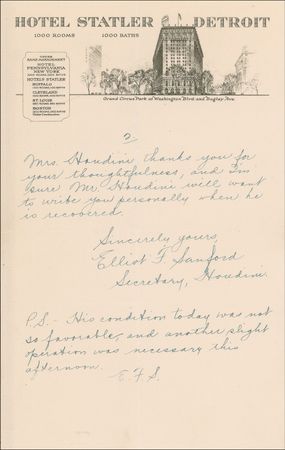 HOTEL STATLER DETROIT
1000 ROOMS 1000 BATHS
UNDER
SAME MANAGEMENT
HOTEL
PENNSYLVANIA
NEW YORK
HOTELS STATLER
BUFFALO
CLEVELAND
ST. LOUIS
BOSTON
Grand Circus Park at Washington Blvd. and Bagley Ave.
2
Mrs. Houdini thanks you for
your thoughtfulness, and I'm
sure Mr. Houdini will want
to write you personally when he
is recovered.
Sincerely yours,
Elliot F Sanford
Secretary, Houdini.
P.S. - His condition today was not
so favorable, and another slight
operation was necessary this
afternoon.
E.F.S.